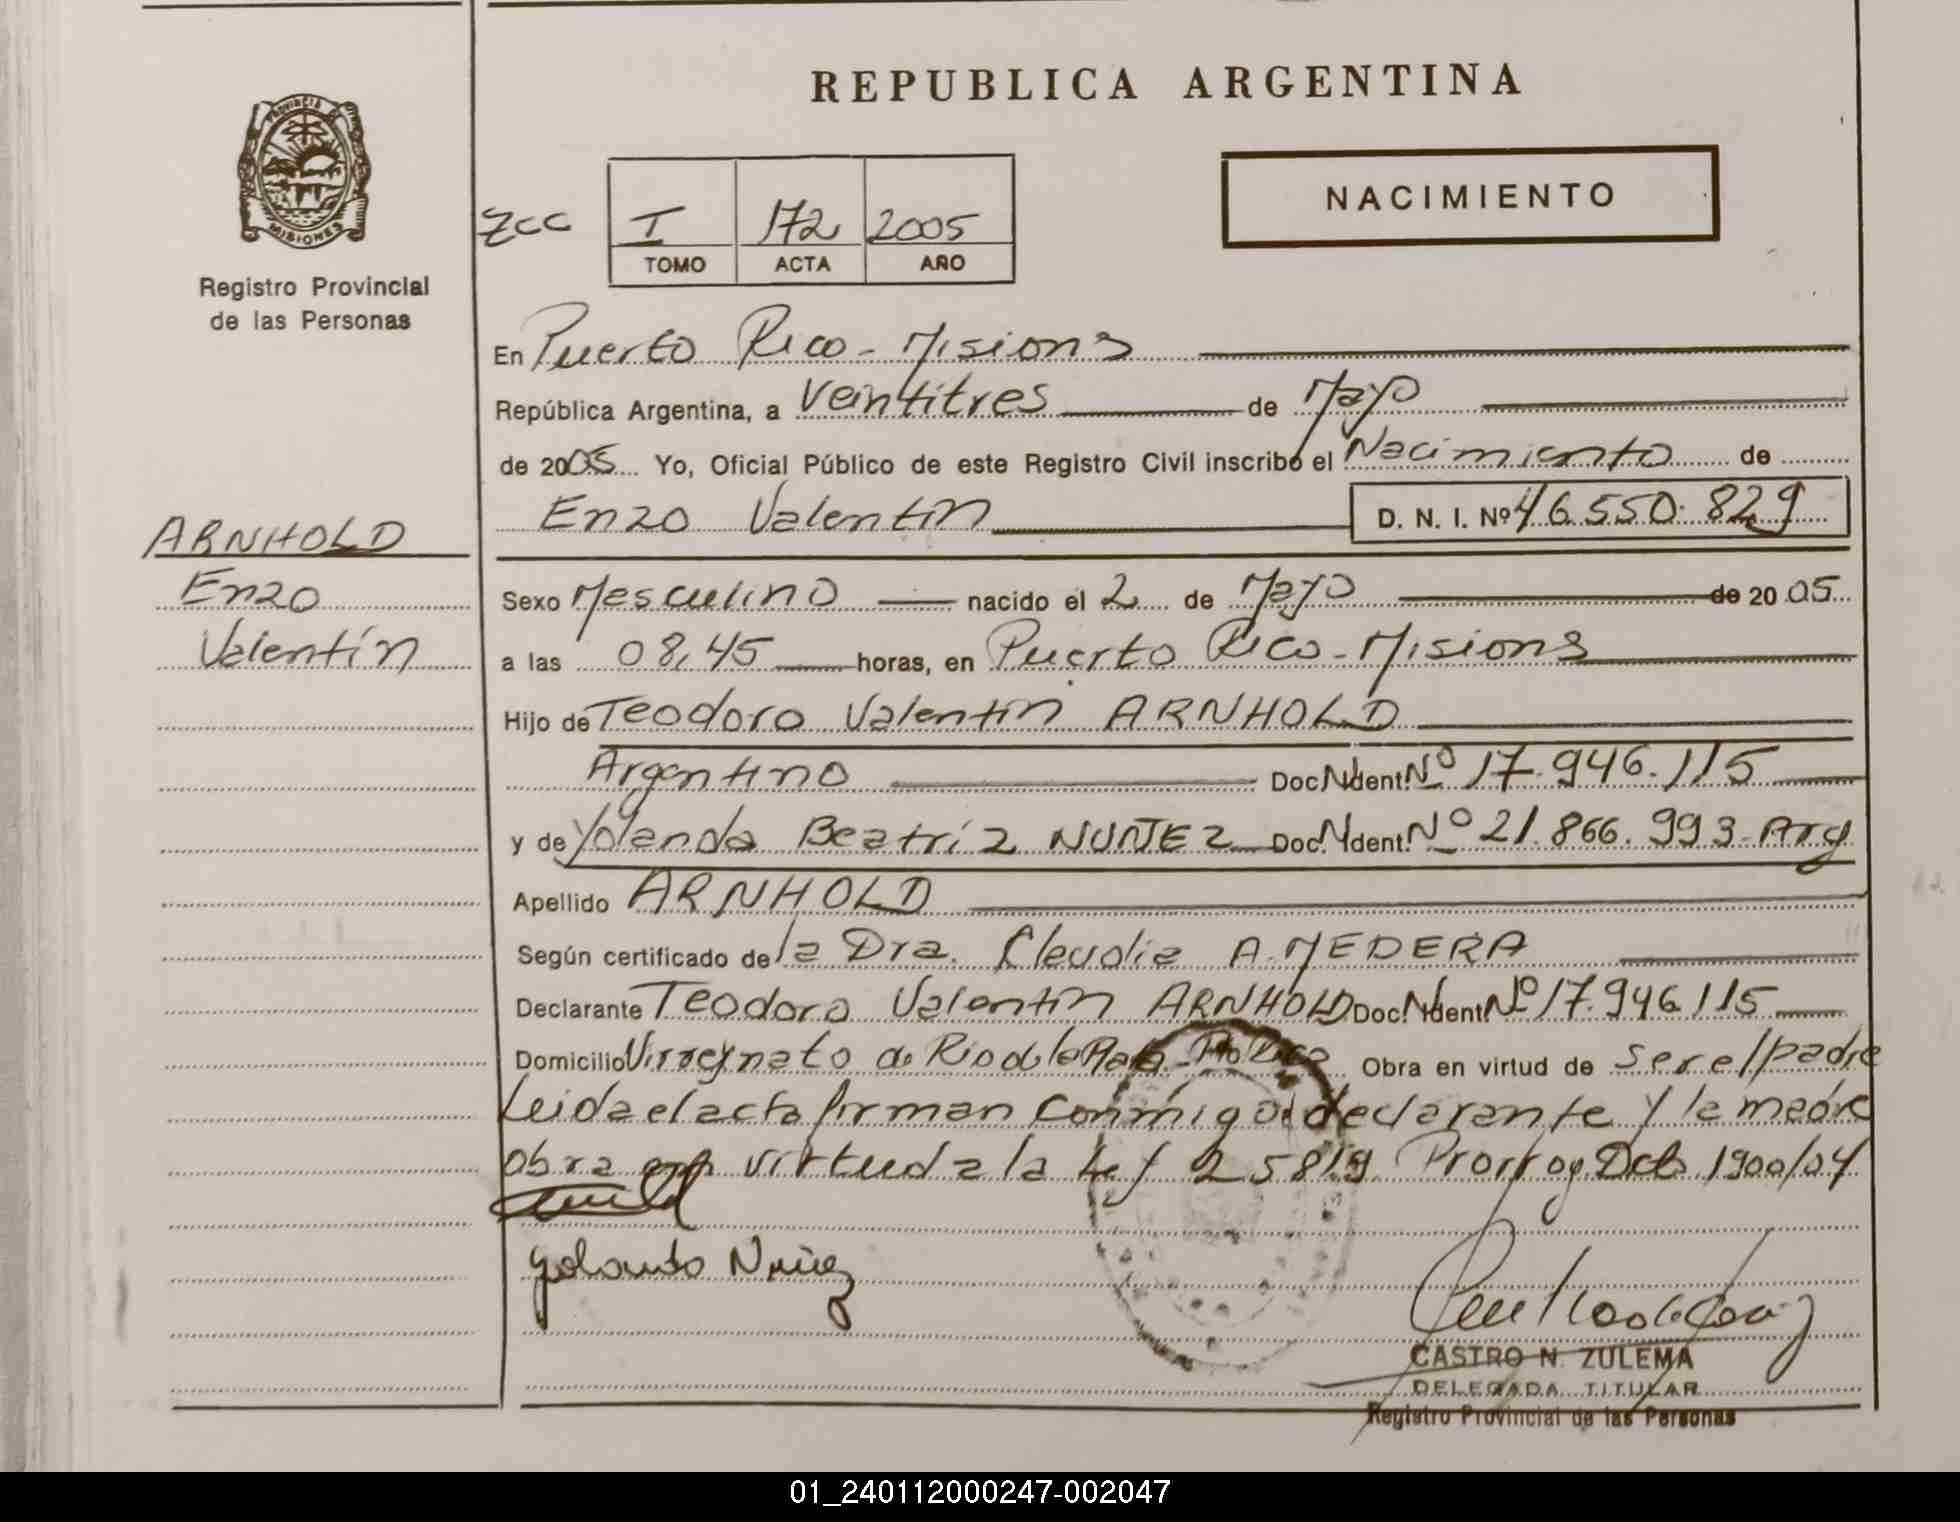 REPUBLICA ARGENTINA
PROVINCIA
MISIONES
Registro Provincial
de las Personas
NACIMIENTO
zcc I 172 2005
TOMO ACTA AÑO
En Puerto Rico - Misions
República Argentina, a Veintitres de Mayo
de 2005 Yo, Oficial Público de este Registro Civil inscribo el Nacimiento de
Enzo Valentín D. N. I. Nº 46.550.829
ARNHOLD
Enzo
Valentín
Sexo Masculino nacido el 2 de Mayo de 2005
a las 08,45 horas, en Puerto Rico - Misions
Hijo de Teodoro Valentín ARNHOLD
Argentino Doc. Ident. Nº 17.946.115
y de Yolanda Beatríz NUÑEZ Doc. Ident. Nº 21.866.993 - Arg
Apellido ARNHOLD
Según certificado de la Dra. Claudia A. MEDERA
Declarante Teodoro Valentín ARNHOLD Doc. Ident. Nº 17.946.115
Domicilio Virreynato de Rio de la Plata - Obra en virtud de ser el padre
Leida el acta firman conmigo declarante y la madre
obra en virtud a la Ley 25819 Prorrog. Dcto 1900/04
Yolanda Nuñez
CASTRO N. ZULEMA
DELEGADA TITULAR
Registro Provincial de las Personas
01_240112000247-002047